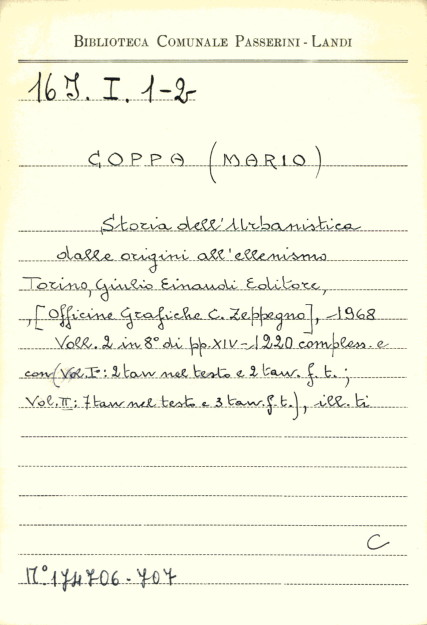 BIBLIOTECA COMUNALE PASSERINI - LANDI
16 J. I. 1-2
COPPA (MARIO)
Storia dell'Urbanistica
dalle origini all'ellenismo
Torino, Giulio Einaudi Editore,
, [Officine Grafiche C. Zeppegno], 1968
Voll. 2 in 8° di pp. XIV-1220 compless. e
con (Vol. I°: 2 tav nel testo e 2 tav. f. t. ;
Vol. II: 7 tav nel testo e 3 tav. f. t.), ill. ti
C
N° 174706-707